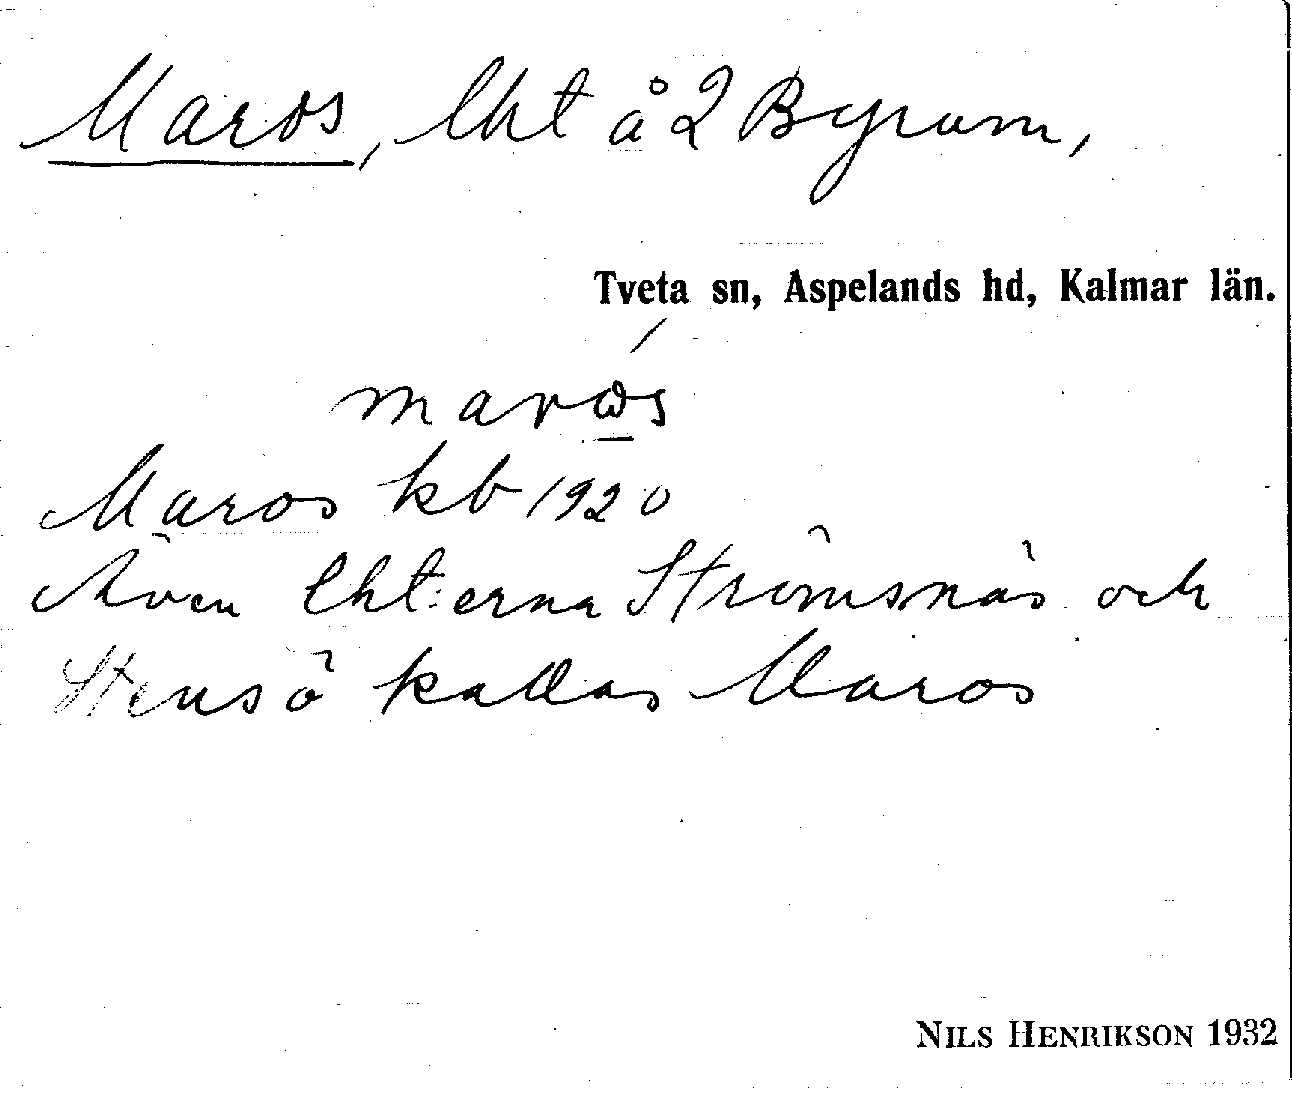 Maros, lht å 2 Byrum,
Tveta sn, Aspelands hd, Kalmar län.
Maros kb 1920
Även lht:erna Strömsnäs och
Stensö kallas Maros
NILS HENRIKSON 1932